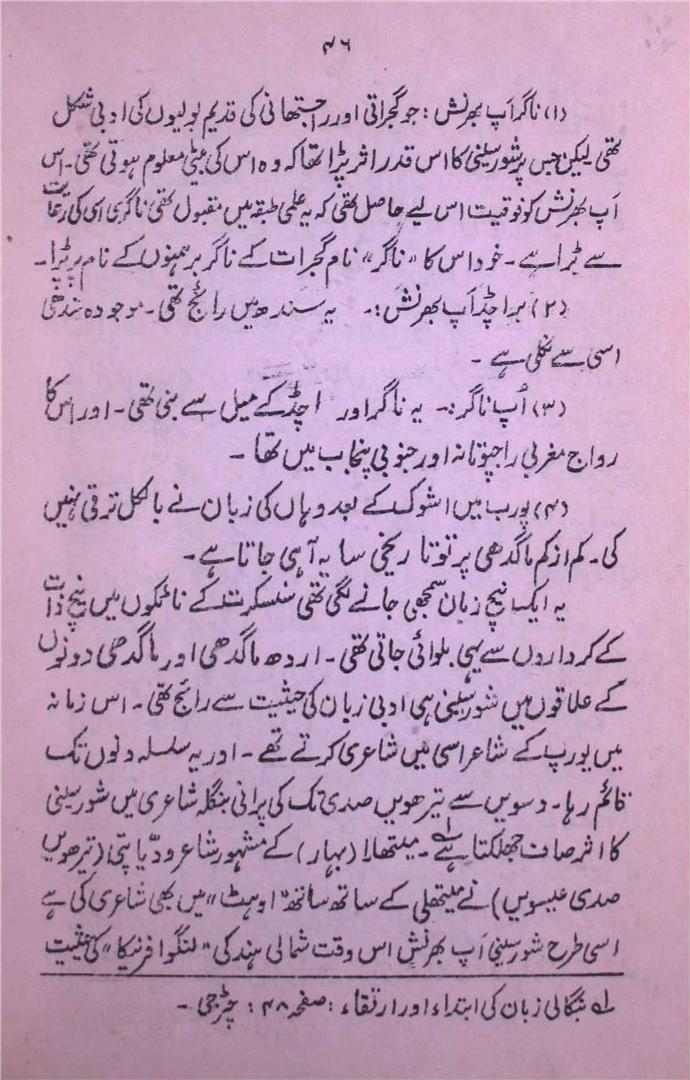 ۴۶
(۱) ناگر اَپ بھرنش : جو گجراتی اور راجستھانی کی قدیم بولیوں کی ادبی شکل
تھی لیکن جس پر شورسینی کا اس قدر اثر پڑا تھا کہ وہ اس کی بیٹی معلوم ہوتی تھی۔ اس
اَپ بھرنش کو فوقیت اس لیے حاصل تھی کہ یہ علمی طبقہ میں مقبول تھی ناگری اسی کی رعایت
سے پڑا ہے۔ خود اس کا "ناگر" نام گجرات کے ناگر برہمنوں کے نام پر پڑا۔
(۲) براچڈ اَپ بھرنش :۔ یہ سندھ میں رائج تھی۔ موجودہ سندھی
اسی سے نکلی ہے ۔
(۳) اُپ ناگر :۔ یہ ناگر اور اچڈ کے میل سے بنی تھی۔ اور اس کا
رواج مغربی راجپوتانہ اور جنوبی پنجاب میں تھا ۔
(۴) پورب میں اشوک کے بعد وہاں کی زبان نے بالکل ترقی نہیں
کی۔ کم از کم ماگدھی پر تو تاریخی سایہ آ ہی جاتا ہے۔
یہ ایک نیچ زبان سمجھی جانے لگی تھی سنسکرت کے ناٹکوں میں نیچ ذات
کے کرداروں سے یہی بلوائی جاتی تھی۔ اردھ ماگدھی اور ماگدھی دونوں
کے علاقوں میں شورسینی ہی ادبی زبان کی حیثیت سے رائج تھی۔ اس زمانہ
میں پورب کے شاعر اسی میں شاعری کرتے تھے۔ اور یہ سلسلہ دنوں تک
قائم رہا۔ دسویں سے تیرھویں صدی تک کی پرانی بنگلہ شاعری میں شورسینی
کا اثر صاف جھلکتا ہے۱؎۔ میتھلا (بہار) کے مشہور شاعر ودّیا پتی (تیرھویں
صدی عیسویں) نے میتھلی کے ساتھ ساتھ "اوہٹ" میں بھی شاعری کی ہے
اسی طرح شورسینی اَپ بھرنش اس وقت شمالی ہند کی "لنگوا فرنیکا" کی حیثیت
۱؎ بنگالی زبان کی ابتداء اور ارتقاء : صفحہ ۴۸ : چٹرجی ۔